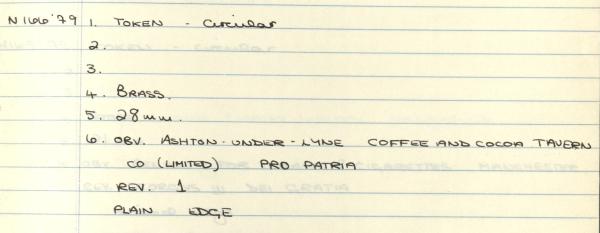 N166'79 1. TOKEN - Circular
2.
3.
4. BRASS.
5. 28mm.
6. OBV. ASHTON-UNDER-LYNE COFFEE AND COCOA TAVERN
CO (LIMITED) PRO PATRIA
REV. 1
PLAIN EDGE